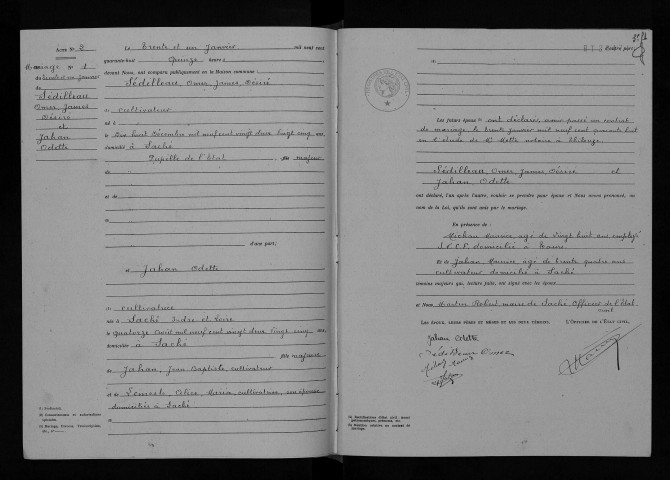 Acte No 2
Mariage No 1
du trente et un janvier
de
Sédilleau
Omer, James
Désiré
et
Jahan
Odette
Le trente et un Janvier mil neuf cent
quarante-huit Quinze heures
devant Nous, ont comparu publiquement en la Maison commune :
Sédilleau, Omer, James, Désiré
cultivateur
né à
le dix huit Décembre mil neuf cent vingt deux vingt cinq ans
domicilié à Saché
Pupille de l'Etat fils majeur
de
et de
d'une part;
et Jahan Odette
cultivatrice
née à Saché Indre et Loire
le quatorze Avril mil neuf cent vingt deux vingt cinq ans
domiciliée à Saché
fille majeure
de Jahan, Jean Baptiste, cultivateur
et de Lemesle Célina Maria, cultivatrice, son épouse
domiciliés à Saché
Les futurs époux ont déclaré avoir passé un contrat
de mariage le trente janvier mil neuf cent quarante huit
en l'étude de Me Motte notaire à Thilouze
Sédilleau, Omer, James, Désiré et
Jahan, Odette
ont déclaré, l'un après l'autre, vouloir se prendre pour époux et Nous avons prononcé, au
nom de la Loi, qu'ils sont unis par le mariage.
En présence de
Maurice agé de vingt huit ans employé
S.N.C.F. domicilié à Tours
Et de Jahan Maurice agé de trente quatre ans
cultivateur domicilié à Saché
témoins majeurs qui, lecture faite, ont signé avec les époux
et Nous Martin Robert maire de Saché Officier de l'Etat
civil
Les époux, leurs pères et mères et les deux témoins, L'Officier de l'État civil,
Jahan Odette
Sédilleau Omer
Jahan